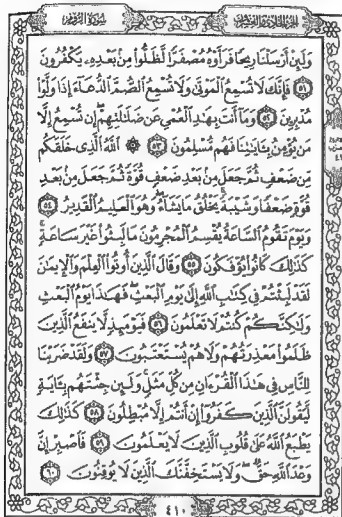 الجزء الحادي والعشرون
سورة الروم
وَلَئِنْ أَرْسَلْنَا رِيحًا فَرَأَوْهُ مُصْفَرًّا لَّظَلُّوا مِنۢ بَعْدِهِۦ يَكْفُرُونَ
٥١ فَإِنَّكَ لَا تُسْمِعُ الْمَوْتَىٰ وَلَا تُسْمِعُ الصُّمَّ الدُّعَآءَ إِذَا وَلَّوْا
مُدْبِرِينَ ٥٢ وَمَآ أَنتَ بِهَٰدِ الْعُمْىِ عَن ضَلَٰلَتِهِمْ إِن تُسْمِعُ إِلَّا
مَن يُؤْمِنُ بِـَٔايَٰتِنَا فَهُم مُّسْلِمُونَ ٥٣ ۞ اللَّهُ الَّذِى خَلَقَكُم
مِّن ضَعْفٍ ثُمَّ جَعَلَ مِنۢ بَعْدِ ضَعْفٍ قُوَّةً ثُمَّ جَعَلَ مِنۢ بَعْدِ
قُوَّةٍ ضَعْفًا وَشَيْبَةً يَخْلُقُ مَا يَشَآءُ وَهُوَ الْعَلِيمُ الْقَدِيرُ ٥٤
وَيَوْمَ تَقُومُ السَّاعَةُ يُقْسِمُ الْمُجْرِمُونَ مَا لَبِثُوا غَيْرَ سَاعَةٍ
كَذَٰلِكَ كَانُوا يُؤْفَكُونَ ٥٥ وَقَالَ الَّذِينَ أُوتُوا الْعِلْمَ وَالْإِيمَٰنَ
لَقَدْ لَبِثْتُمْ فِى كِتَٰبِ اللَّهِ إِلَىٰ يَوْمِ الْبَعْثِ فَهَٰذَا يَوْمُ الْبَعْثِ
وَلَٰكِنَّكُمْ كُنتُمْ لَا تَعْلَمُونَ ٥٦ فَيَوْمَئِذٍ لَّا يَنفَعُ الَّذِينَ
ظَلَمُوا مَعْذِرَتُهُمْ وَلَا هُمْ يُسْتَعْتَبُونَ ٥٧ وَلَقَدْ ضَرَبْنَا
لِلنَّاسِ فِى هَٰذَا الْقُرْءَانِ مِن كُلِّ مَثَلٍ وَلَئِن جِئْتَهُم بِـَٔايَةٍ
لَّيَقُولَنَّ الَّذِينَ كَفَرُوا إِنْ أَنتُمْ إِلَّا مُبْطِلُونَ ٥٨ كَذَٰلِكَ
يَطْبَعُ اللَّهُ عَلَىٰ قُلُوبِ الَّذِينَ لَا يَعْلَمُونَ ٥٩ فَاصْبِرْ إِنَّ
وَعْدَ اللَّهِ حَقٌّ وَلَا يَسْتَخِفَّنَّكَ الَّذِينَ لَا يُوقِنُونَ ٦٠
٤١٠